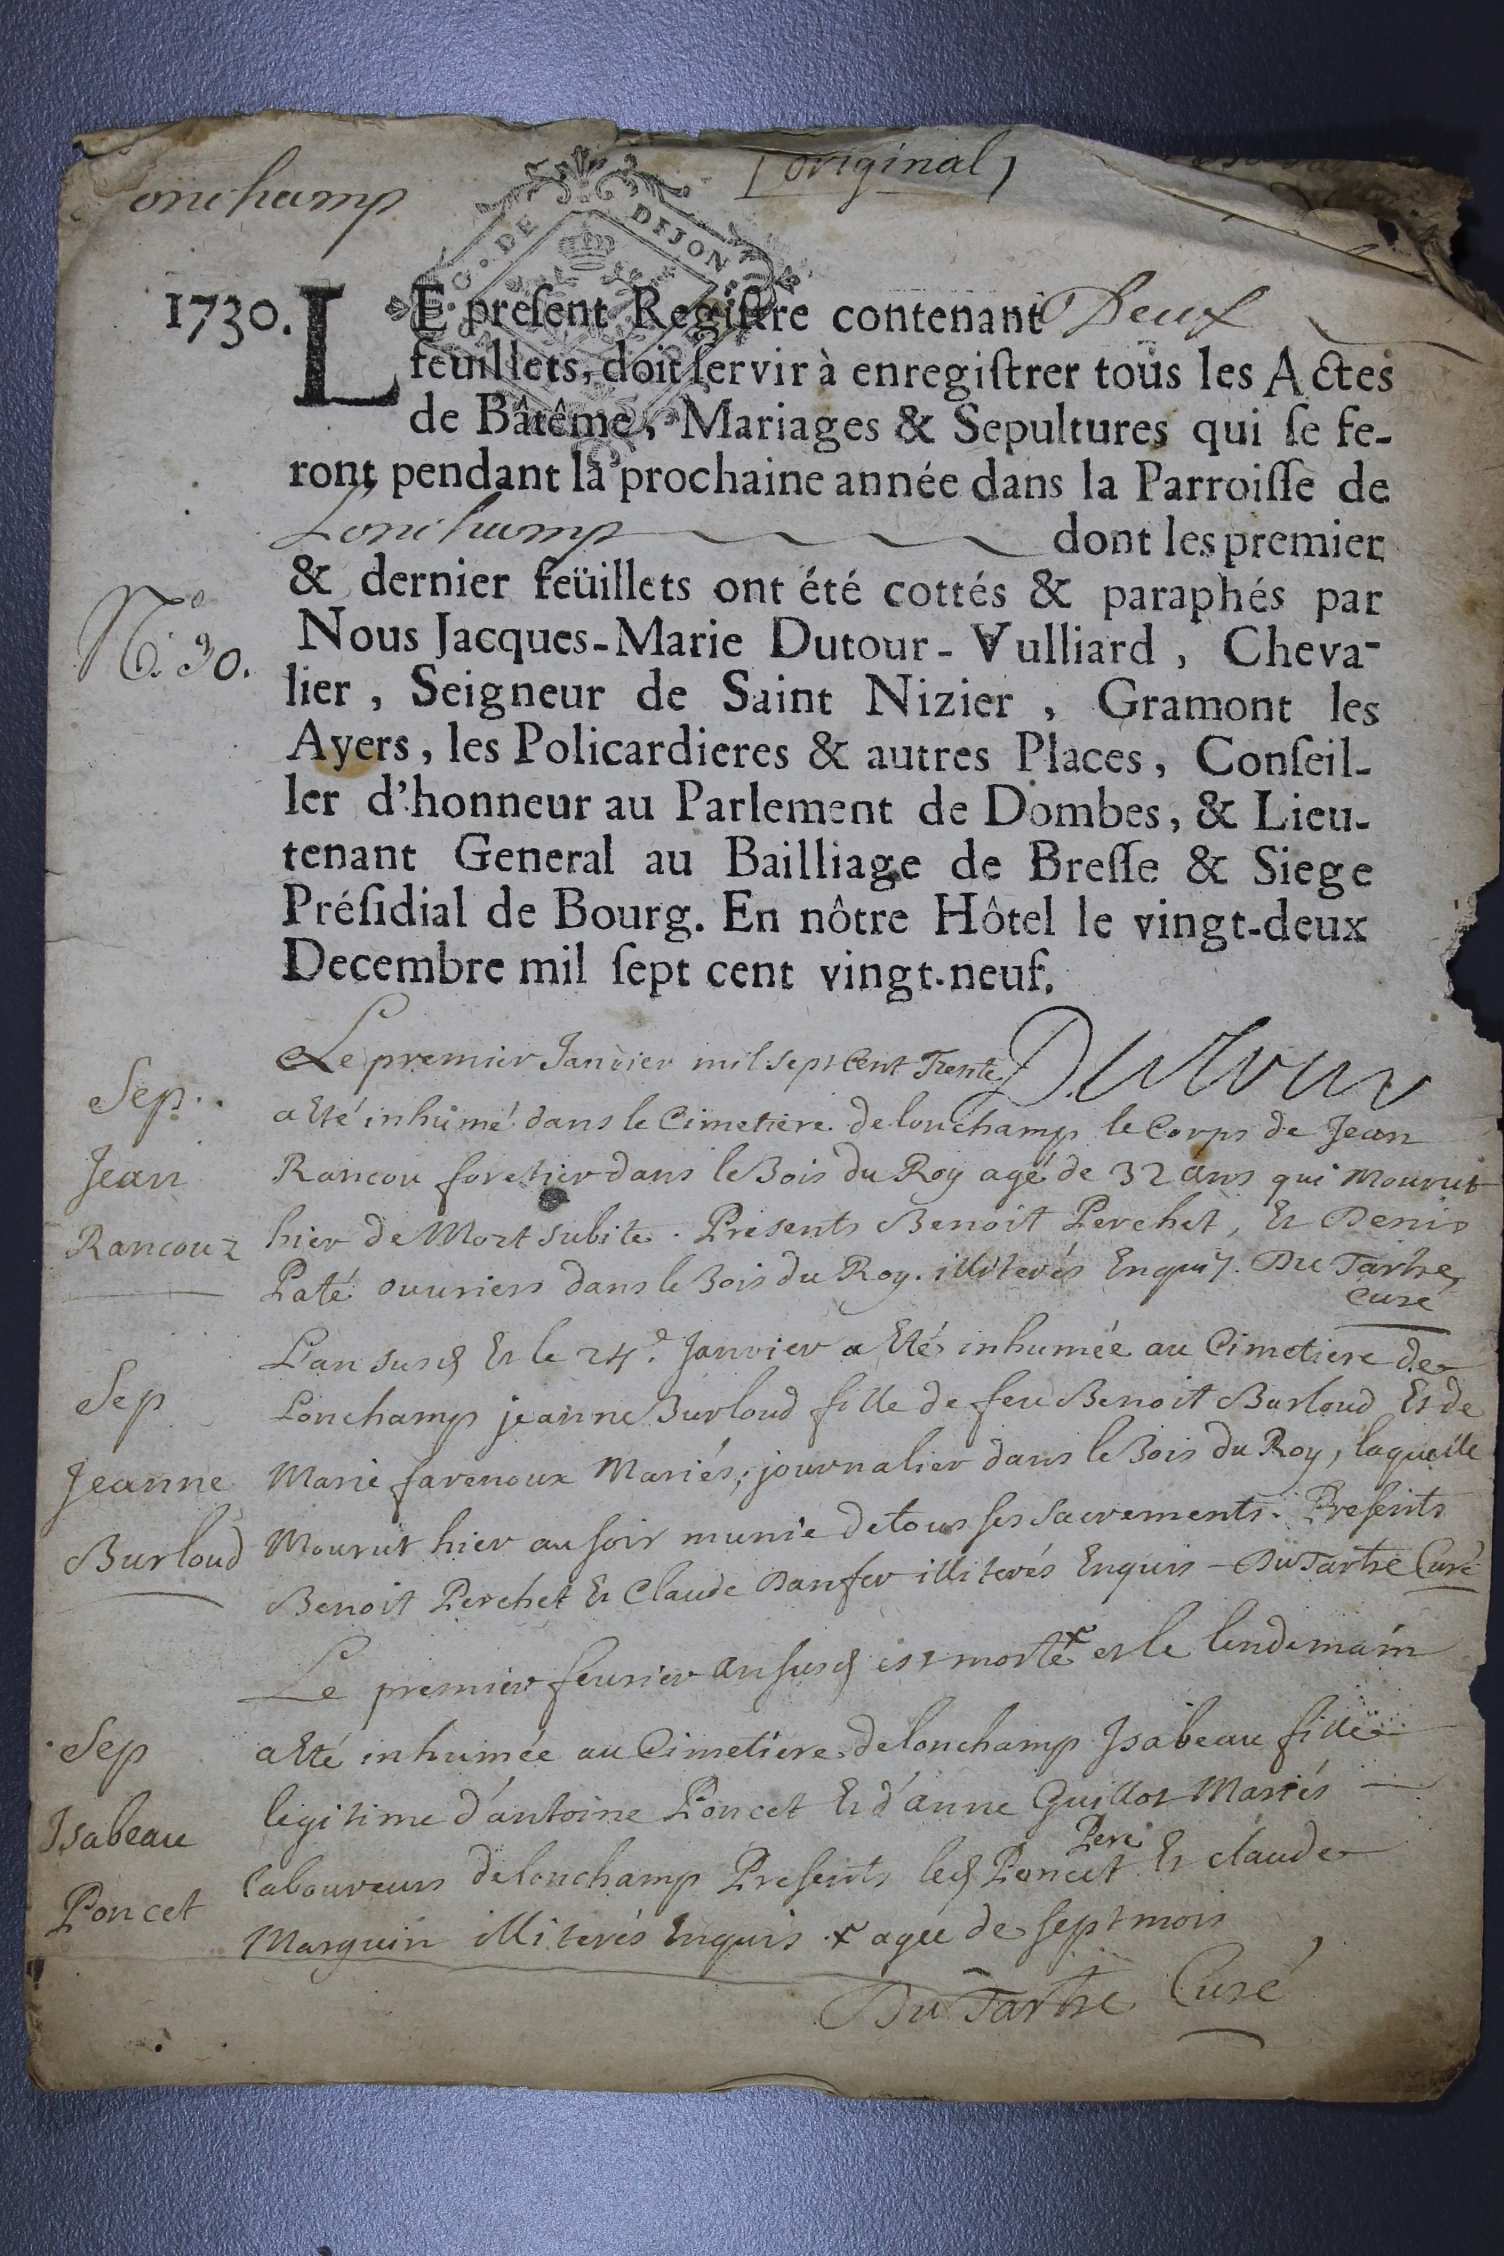 onchamp
(original)
G. DE DIJON
1730. LE preſent Regiſtre contenant Deux
feuillets, doit ſervir à enregiſtrer tous les Actes
de Bâtême, Mariages & Sepultures qui ſe fe-
ront pendant la prochaine année dans la Parroiſſe de
Lonchamp dont les premier
& dernier feüillets ont été cottés & paraphés par
Nº. 90.
Nous Jacques-Marie Dutour-Vulliard, Cheva-
lier, Seigneur de Saint Nizier, Gramont les
Ayers, les Policardieres & autres Places, Conſeil-
ler d'honneur au Parlement de Dombes, & Lieu-
tenant General au Bailliage de Breſſe & Siege
Préſidial de Bourg. En nôtre Hôtel le vingt-deux
Decembre mil ſept cent vingt-neuf.
Dutour
Sep.
Jean
Rancouz
Le premier Janvier mil sept Cent Trente
a Eté inhumé dans le Cimetiere de lonchamp le Corps de Jean
Rancou foretier dans le Bois du Roy agé de 32 ans qui Mourut
hier de Mort subite. Presents Benoit Perchet, Et Denis
Paté ouvriers dans le Bois du Roy. illiterés Enquis. Du Tartre
curé
Sep
Jeanne
Burloud
L'an susd Et le 24e. Janvier a Eté inhumée au Cimetiere de
Lonchamp jeanne Burloud fille de feu Benoit Burloud Et de
Marie favenoux Mariés, journalier dans le Bois du Roy, laquelle
Mourut hier au soir munie de tous ses sacrements. Presents
Benoit Perchet Et Claude Danfer illiterés Enquis - Du Tartre Curé
Sep
Isabeau
Poncet
Le premier fevrier an susd est morte x et le lendemain
a Eté inhumée au Cimetiere de lonchamp Isabeau fille
legitime d'antoine Poncet Et d'anne Guillot Mariés
laboureurs de lonchamp Presents led Poncet Pere Et claude
Marguin illiterés Enquis x agée de sept mois
Du Tartre Curé